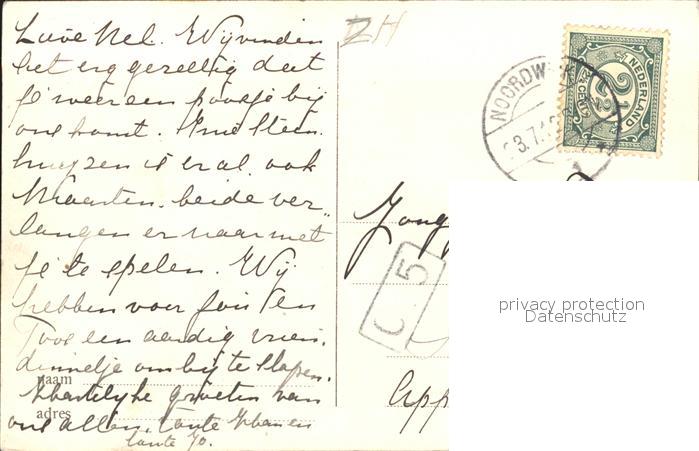 Lieve Nel. Wij vinden
het erg gezellig dat
je weer een poosje bij
ons komt.
huyzen is er al ook
Maarten. beide ver„
langen er naar met
je te spelen. Wij
hebben voor jou en
Toos een aardig vrien„
dinnetje om bij te slapen.
Hartelijke groeten van
ons allen. tante en
tante Jo.
naam
adres
ZH
NOORDWIJK
3.7.1
NEDERLAND
2½
2½ CENT
Jong
C 5
App
privacy protection
Datenschutz